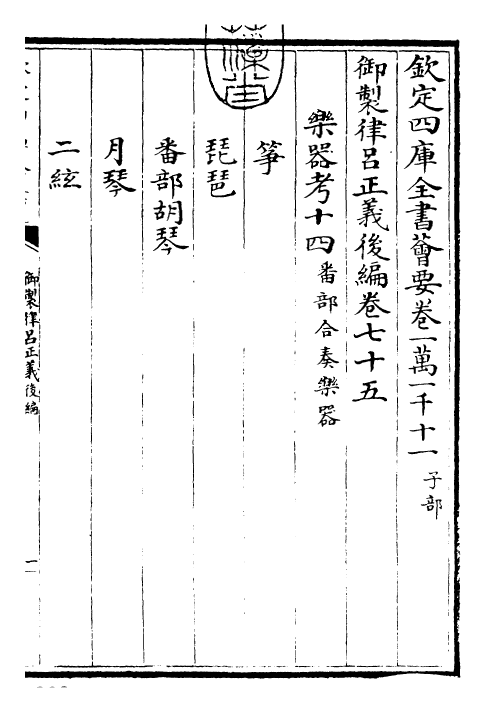 欽定四庫全書薈要卷一萬一千十一 子部
御製律呂正義後編卷七十五
樂器考十四 番部合奏樂器
箏
琵琶
番部胡琴
月琴
二絃
御製律呂正義後編
一